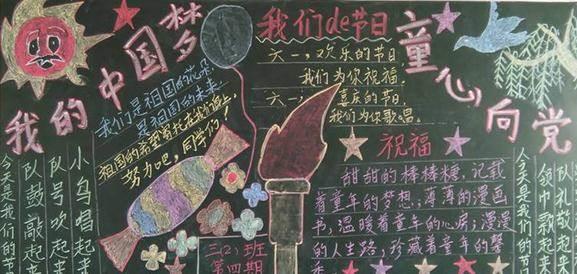 我的中国梦
童心向党
我们de节日
六一，欢乐的节日，
我们为你祝福，
六一，喜庆的节日，
我们为你歌唱。
我们是祖国的花朵
是祖国的未来，
祖国的希望寄托在我们身上，
努力吧，同学们！
祝福
甜甜的棒棒糖，记载
着童年的梦想；薄薄的漫画
书，温暖着童年的心房；漫漫
的人生路，珍藏着童年的馨
小鸟唱起来
队号吹起来
队鼓敲起来
今天是我们的节
队礼敬起来
领巾飘起来
今天是我们的节
三（2）班
第四期